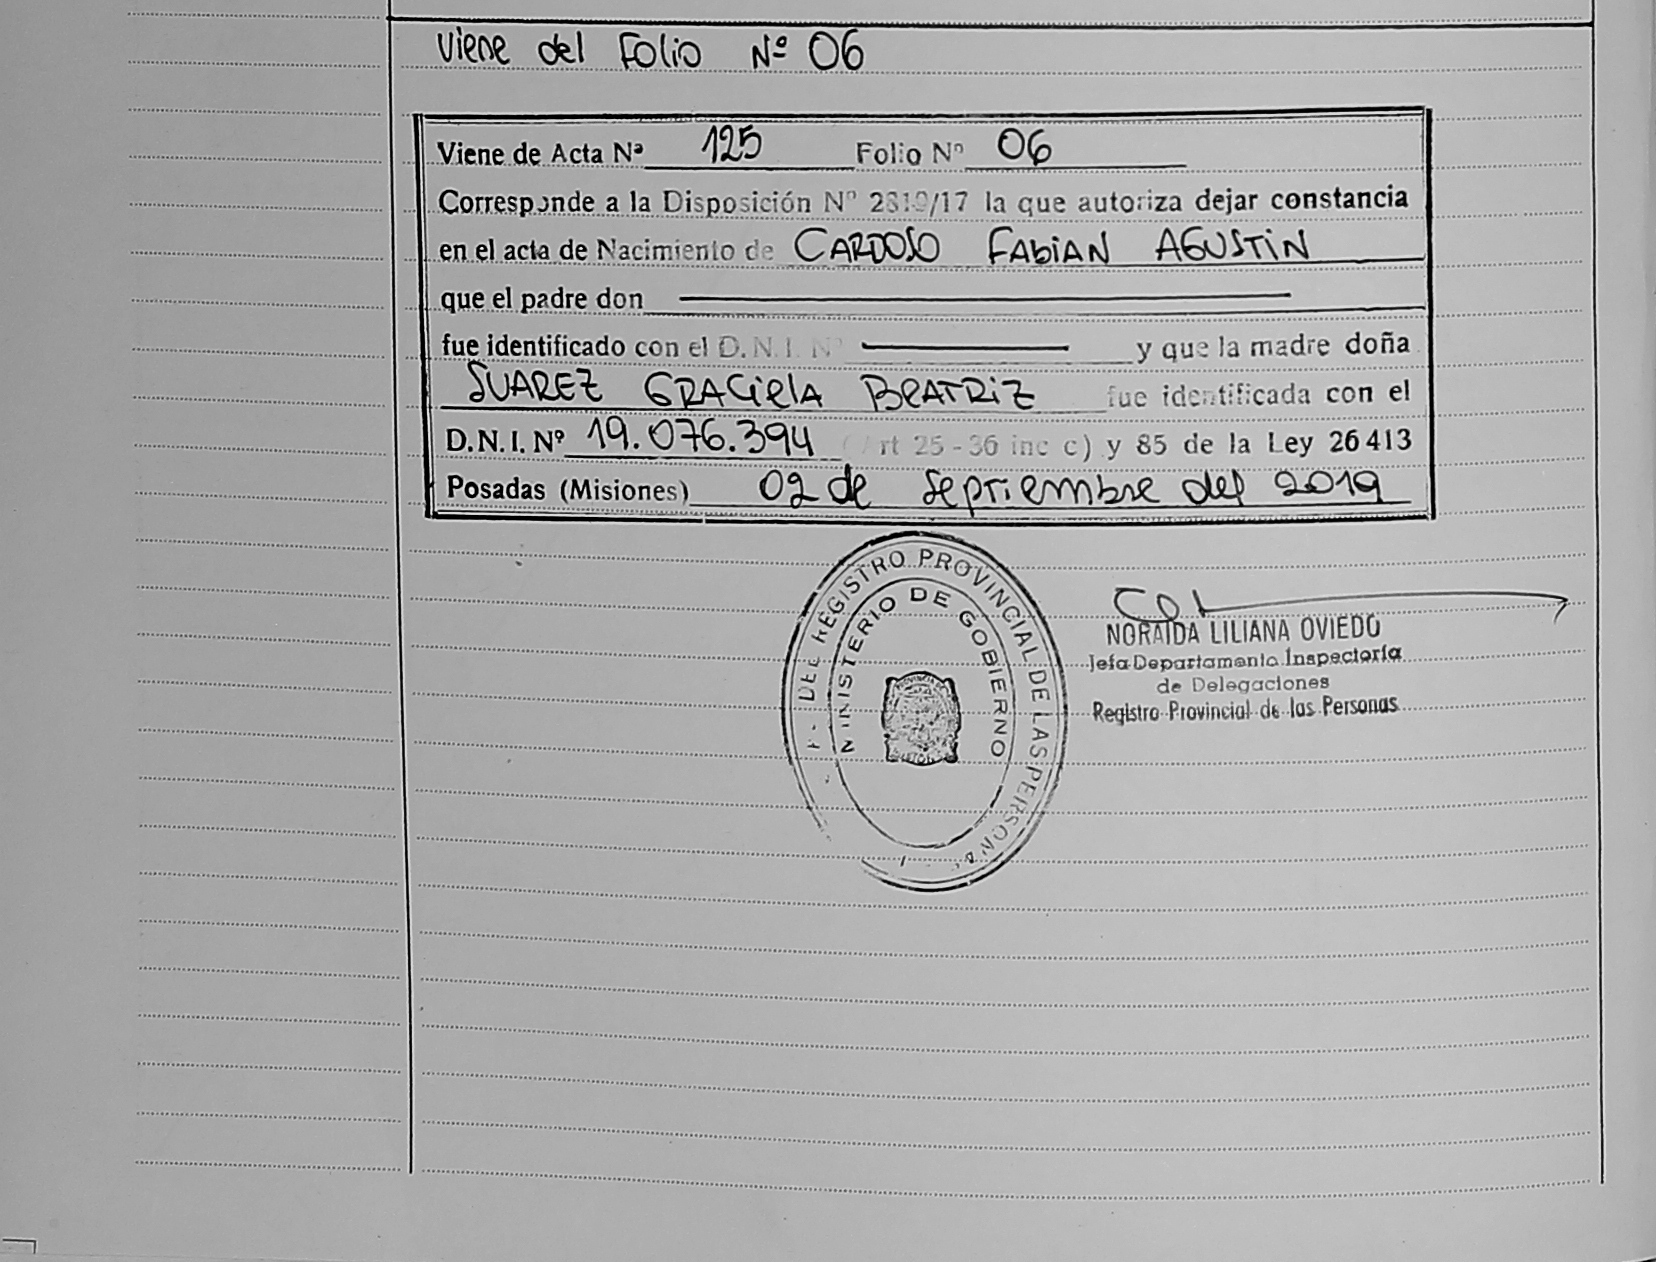 Viene del Folio Nº 06
Viene de Acta Nº 125 Folio Nº 06
Corresponde a la Disposición Nº 2319/17 la que autoriza dejar constancia
en el acta de Nacimiento de CARDOSO FABIAN AGUSTIN
que el padre don
fue identificado con el D.N.I. Nº y que la madre doña
SUAREZ GRACIELA BEATRIZ fue identificada con el
D.N.I. Nº 19.076.394 (Art 25-36 inc c) y 85 de la Ley 26413
Posadas (Misiones) 02 de Septiembre del 2019
DEL REGISTRO PROVINCIAL DE LAS PERSONAS
MINISTERIO DE GOBIERNO
NORAIDA LILIANA OVIEDO
Jefa Departamento Inspectoría
de Delegaciones
Registro Provincial de las Personas